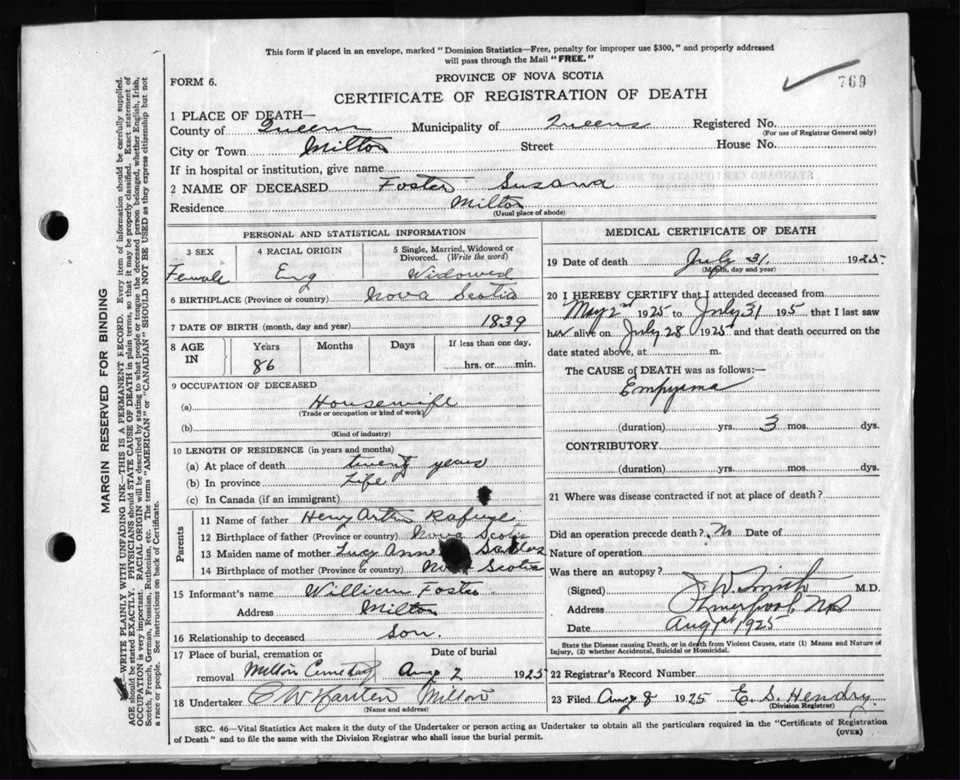 This form if placed in an envelope, marked "Dominion Statistics—Free, penalty for improper use $300," and properly addressed
will pass through the Mail "FREE."
FORM 6.
PROVINCE OF NOVA SCOTIA
769
CERTIFICATE OF REGISTRATION OF DEATH
1 PLACE OF DEATH—
County of Queens Municipality of Queens Registered No.
(For use of Registrar General only)
City or Town Milton Street House No.
If in hospital or institution, give name
2 NAME OF DECEASED Foster Susana
Residence Milton
(Usual place of abode)
PERSONAL AND STATISTICAL INFORMATION
3 SEX 4 RACIAL ORIGIN 5 Single, Married, Widowed or Divorced. (Write the word)
Female Eng Widowed
6 BIRTHPLACE (Province or country) Nova Scotia
7 DATE OF BIRTH (month, day and year) 1839
8 AGE IN Years Months Days If less than one day,
86 hrs. or min.
9 OCCUPATION OF DECEASED
(a) Housewife
(Trade or occupation or kind of work)
(b)
(Kind of industry)
10 LENGTH OF RESIDENCE (in years and months)
(a) At place of death twenty years
(b) In province Life
(c) In Canada (if an immigrant)
Parents
11 Name of father Henry
12 Birthplace of father (Province or country) Nova Scotia
13 Maiden name of mother Lucy Ann
14 Birthplace of mother (Province or country) Nova Scotia
15 Informant's name William Foster
Address Milton
16 Relationship to deceased Son.
17 Place of burial, cremation or removal Date of burial
Milton Cemetery Aug 2 1925
18 Undertaker Milton
(Name and address)
MEDICAL CERTIFICATE OF DEATH
19 Date of death July 31. 1925
(Month, day and year)
20 I HEREBY CERTIFY that I attended deceased from
May 2nd 1925 to July 31 195 that I last saw
her alive on July 28 1925 and that death occurred on the
date stated above, at m.
The CAUSE OF DEATH was as follows:—
Empyema
(duration) yrs. 3 mos. dys.
CONTRIBUTORY
(duration) yrs. mos. dys.
21 Where was disease contracted if not at place of death?
Did an operation precede death? No Date of
Nature of operation
Was there an autopsy?
(Signed) M.D.
Address Liverpool, NS
Date Aug 1st 1925
State the Disease causing Death, or in Death from Violent Causes, state (1) Means and Nature of
Injury, (2) whether Accidental, Suicidal or Homicidal.
22 Registrar's Record Number
23 Filed Aug 8 1925 E. S. Hendry
(Division Registrar)
SEC. 46—Vital Statistics Act makes it the duty of the Undertaker or person acting as Undertaker to obtain all the particulars required in the "Certificate of Registration
of Death" and to file the same with the Division Registrar who shall issue the burial permit.
(OVER)
MARGIN RESERVED FOR BINDING
WRITE PLAINLY WITH UNFADING INK—THIS IS A PERMANENT RECORD. Every item of information should be carefully supplied.
AGE should be stated EXACTLY. PHYSICIANS should STATE CAUSE OF DEATH in plain terms, so that it may be properly classified. Exact statement of
OCCUPATION is very important. RACIAL ORIGIN will be described by stating to what people or tongue the deceased person belonged, whether English, Irish,
Scotch, French, German, Russian, Ruthenian, etc. The terms "AMERICAN" or "CANADIAN" SHOULD NOT BE USED as they express citizenship but not
a race or people. See instructions on back of Certificate.